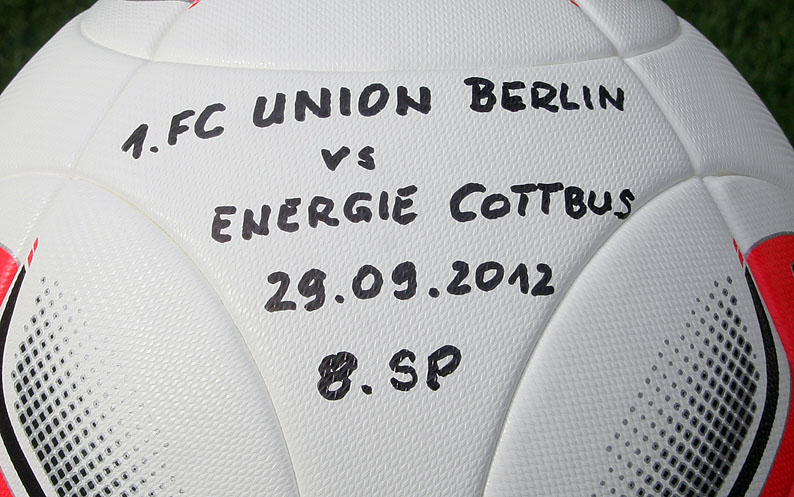 1. FC UNION BERLIN
vs
ENERGIE COTTBUS
29.09.2012
8. SP